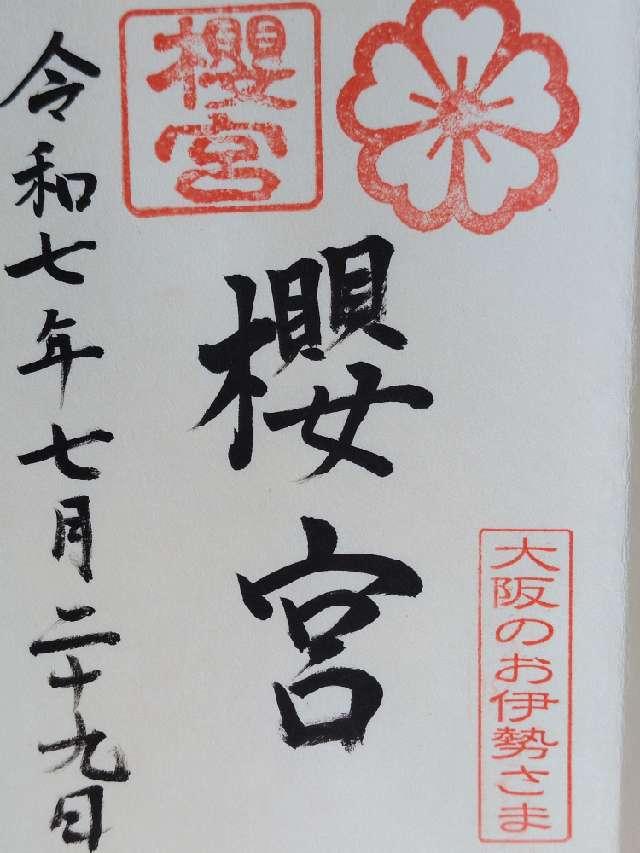 大阪のお伊勢さま
櫻宮
櫻宮
令和七年七月二十九日